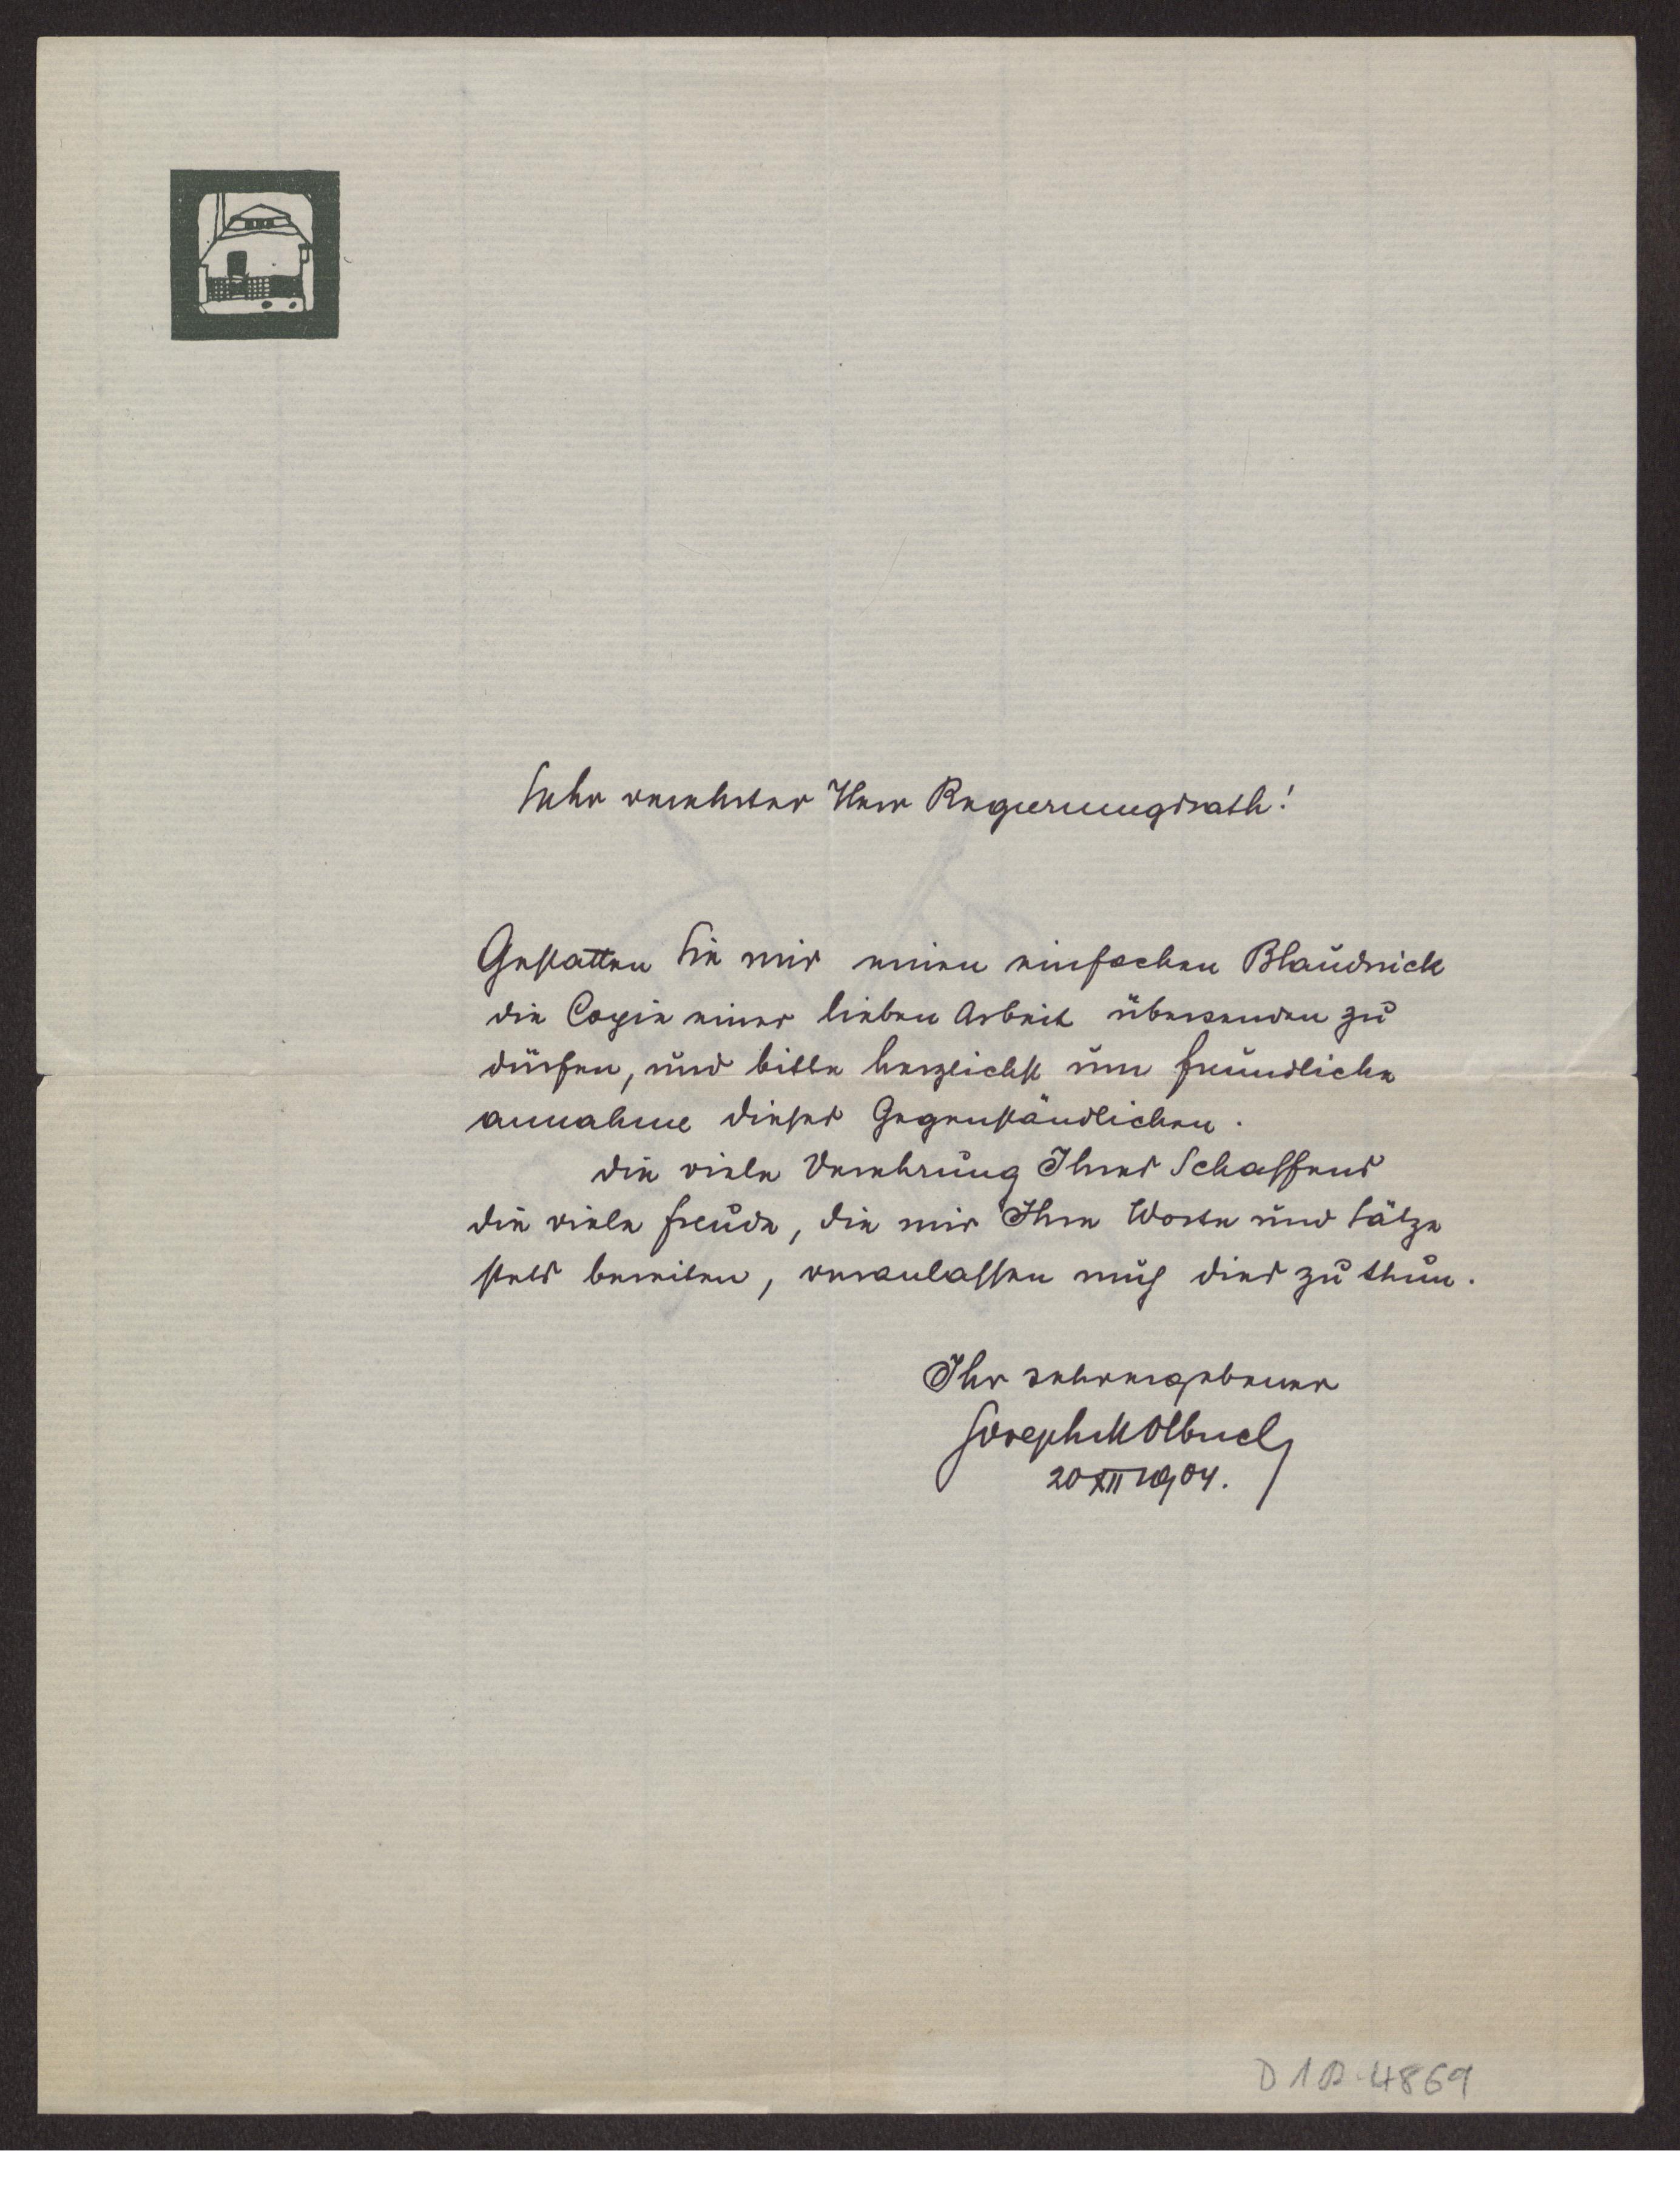 Sehr verehrter Herr Regierungsrath!
Gestatten Sie mir einen einfachen Blaudruck
die Copie einer lieben Arbeit übersenden zu
dürfen, und bitte herzlichst um freundliche
annahme dieses Gegenständlichen.
die viele Verehrung Ihres Schaffens
die viele freude, die mir Ihre Worte und Sätze
stets bereiten, veranlassen mich dies zu thun.
Ihr sehr ergebener
Joseph M Olbrich
20 XII 1904.
D 1A-4869